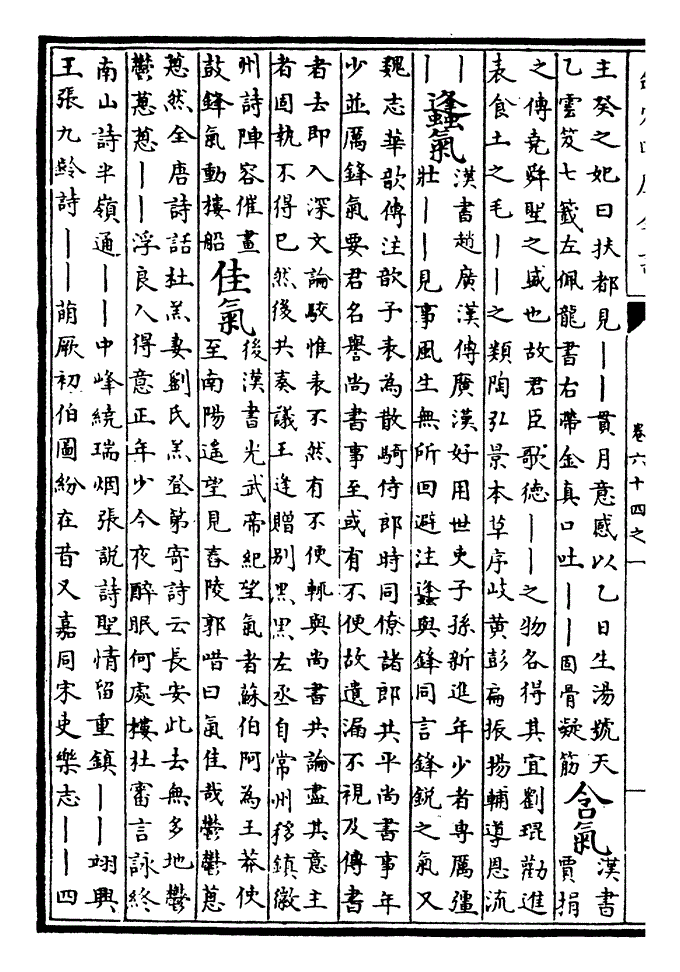 欽定四庫全書
卷六十四之一
主癸之妃曰扶都見——貫月意感以乙日生湯號天
乙雲笈七籖左佩龍書右帶金真口吐——固骨凝筋
含氣
漢書
賈捐
之傳堯舜聖之盛也故君臣歌德——之物各得其宜劉琨勸進
表食土之毛——之類陶弘景本草序岐黄彭扁振揚輔導恩流
—
—
蠭氣
漢書趙廣漢傳廣漢好用世吏子孫新進年少者專厲彊
壯——見事風生無所回避注蠭與鋒同言鋒鋭之氣又
魏志華歆傳注歆子表為散騎侍郎時同僚諸郎共平尚書事年
少並厲鋒氣要君名譽尚書事至或有不便故遺漏不視及傳書
者去即入深文論駮惟表不然有不便輒與尚書共論盡其意主
者固執不得已然後共奏議王逢贈别黑黑左丞自常州移鎮徽
州詩陣容催畫
鼓鋒氣動樓船
佳氣
後漢書光武帝紀望氣者蘇伯阿為王莽使
至南陽遥望見舂陵郭唶曰氣佳哉鬱鬱葱
葱然全唐詩話杜羔妻劉氏羔登第寄詩云長安此去無多地鬱
鬱葱葱——浮良人得意正年少今夜醉眠何處樓杜審言詠終
南山詩半嶺通——中峰繞瑞烟張説詩聖情留重鎮——翊興
王張九齡詩——萌厥初伯圖紛在昔又嘉同宋史樂志——四